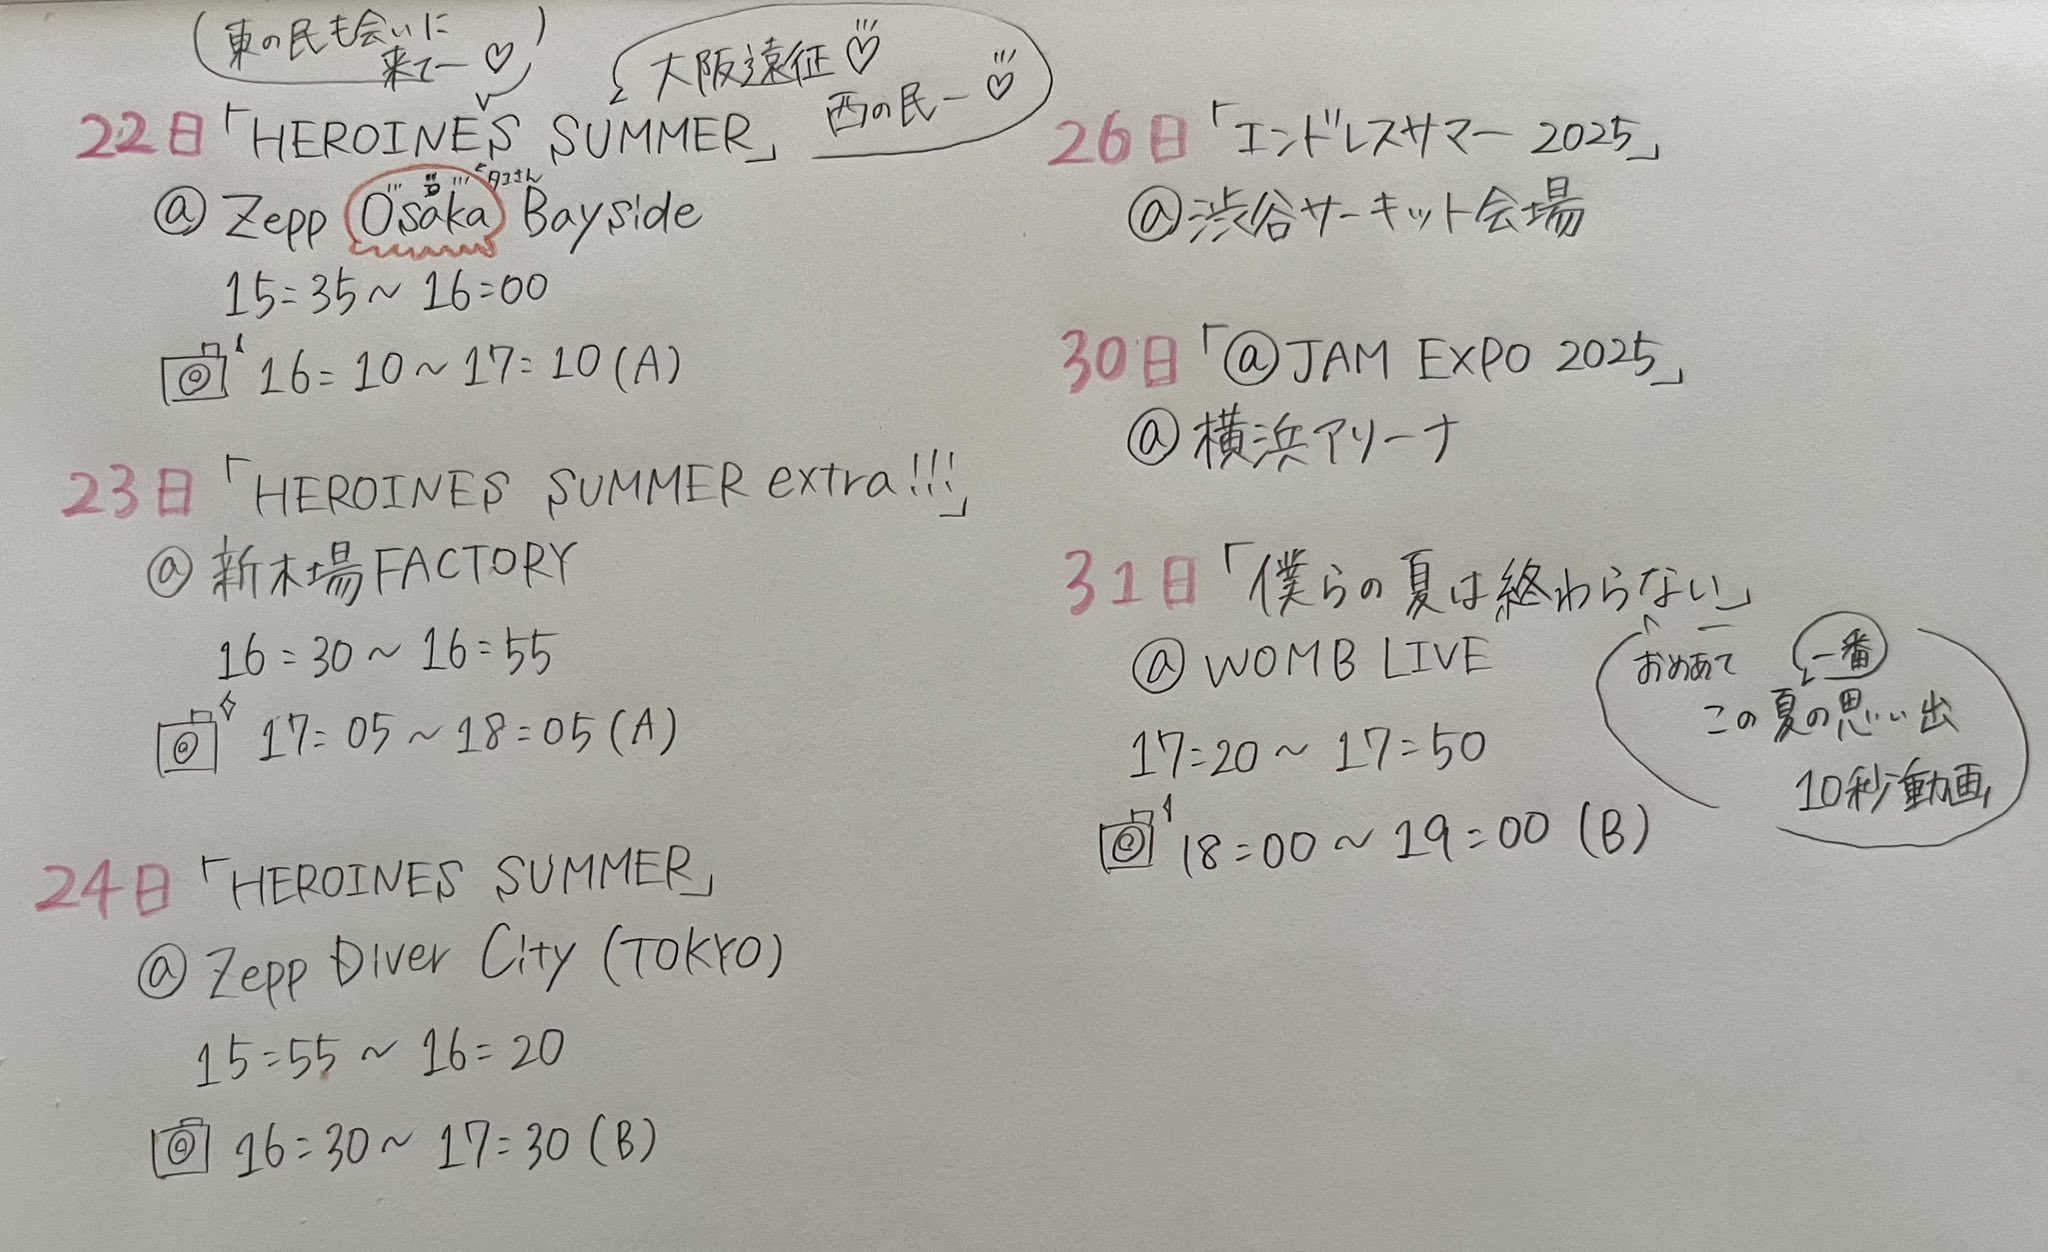 (東の民も会いに
来てー♡)
大阪遠征♡
西の民ー♡
22日「HEROINES SUMMER」
←タコさん
@ Zepp Osaka Bayside
15:35〜16:00
16:10〜17:10(A)
23日「HEROINES SUMMER extra!!!」
@ 新木場FACTORY
16:30〜16:55
17:05〜18:05(A)
24日「HEROINES SUMMER」
@ Zepp Diver City (TOKYO)
15:55〜16:20
16:30〜17:30(B)
26日「エンドレスサマー 2025」
@渋谷サーキット会場
30日「@JAM EXPO 2025」
@横浜アリーナ
31日「僕らの夏は終わらない」
@ WOMB LIVE
17:20〜17:50
18:00〜19:00(B)
おめあて
一番
この夏の思い出
10秒動画